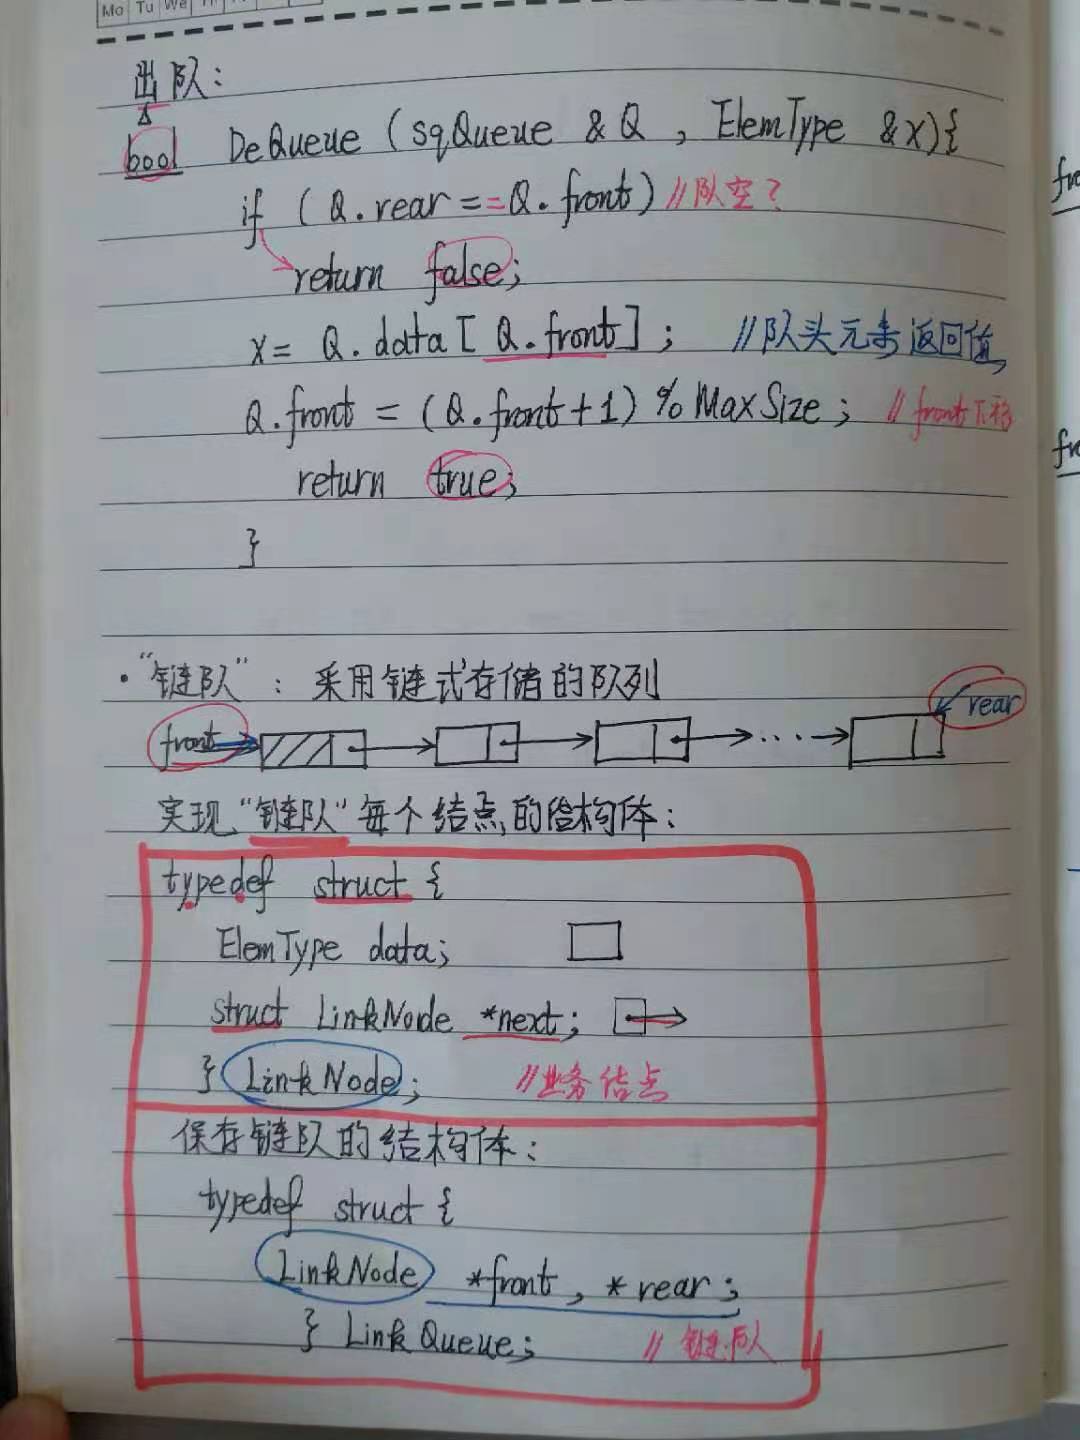 Mo Tu We
出队：
bool DeQueue (sqQueue &Q , ElemType &x){
if (Q.rear==Q.front) //队空?
return false;
x= Q.data[Q.front]; //队头元素返回值
Q.front = (Q.front+1)%MaxSize; //front下移
return true;
}
·"链队"：采用链式存储的队列
front ... rear
实现"链队"每个结点的结构体：
typedef struct {
ElemType data;
struct LinkNode *next;
}LinkNode; //业务结点
保存链队的结构体：
typedef struct {
LinkNode *front, *rear;
} LinkQueue; //链队